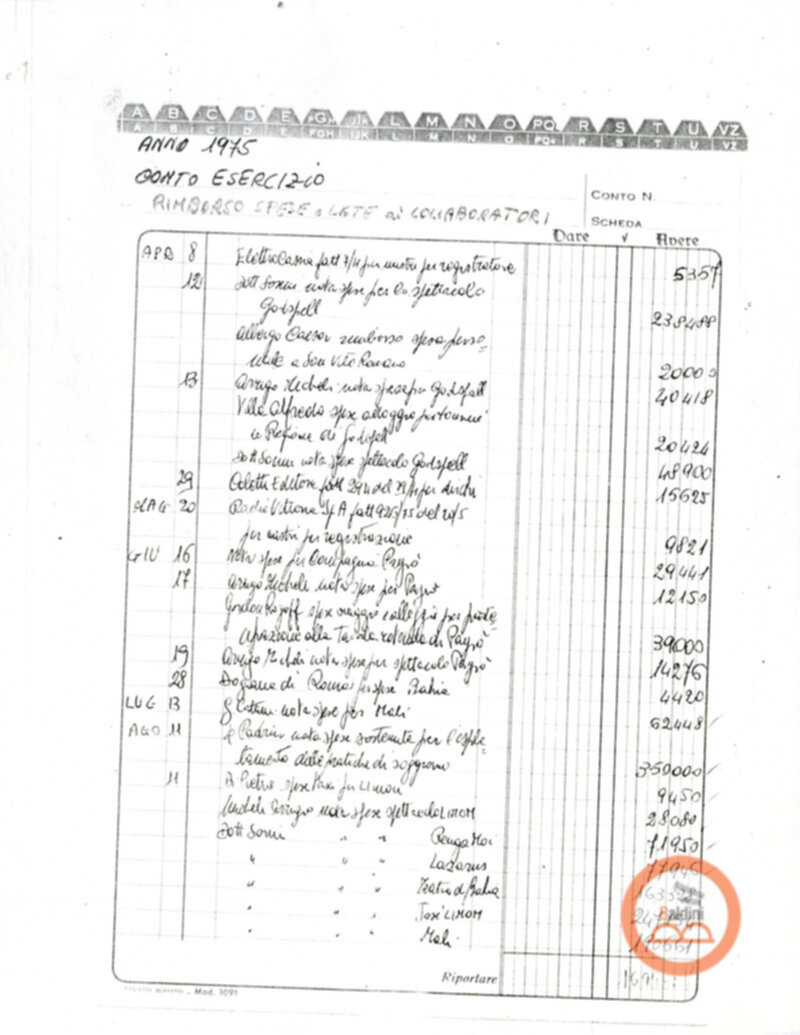 A B C D E FGH IJK L M N O PQ R S T U VZ
A B C D E FGH IJK L M N O PQ R S T U VZ
ANNO 1975
CONTO ESERCIZIO
RIMBORSO SPESE ai COLLABORATORI
CONTO N.
SCHEDA
Dare √ Avere
APR 8 fatt per nastri per registratore 5357
12 Dott Sonni nota spese per lo spettacolo
Godspell 238488
Albergo Caesar rimborso spese perso=
nale a San Vito Romano 20000
13 Arrigo Micheli nota spese per Godspell 40418
Villa Alfredo spese alloggio per tournee
in Regione di Godspell 20424
Dott Sonni nota spese spettacolo Godspell 48900
29 Editore fatt del per dischi 15625
MAG 20 Radio Vittoria SpA fatt 925/75 del 20/5
per nastri per registrazione 9821
GIU 16 Nota spese per Compagnia Payrò 29441
17 Arrigo Micheli nota spese per Payrò 12150
spese viaggio e alloggio per parte=
cipazione alla Tavola rotonda di Payrò 39000
19 Arrigo Micheli nota spese per spettacolo Payrò 14276
28 Dogana di Roma per spese Bahia 4420
LUG 13 nota spese per Mali 62448
AGO 11 Padrini nota spese sostenute per l'esple=
tamento delle pratiche di soggiorno 350000
11 Di Pietro spese per Limon 9450
Micheli Arrigo nota spese spettacolo LIMON 28080
Dott Sonni " " 71950
" " " Lazarus 77946
" " " Teatro di Bahia
" " " José LIMON
" " " Mali 190661
Riportare
Mod. 1091
Baldini